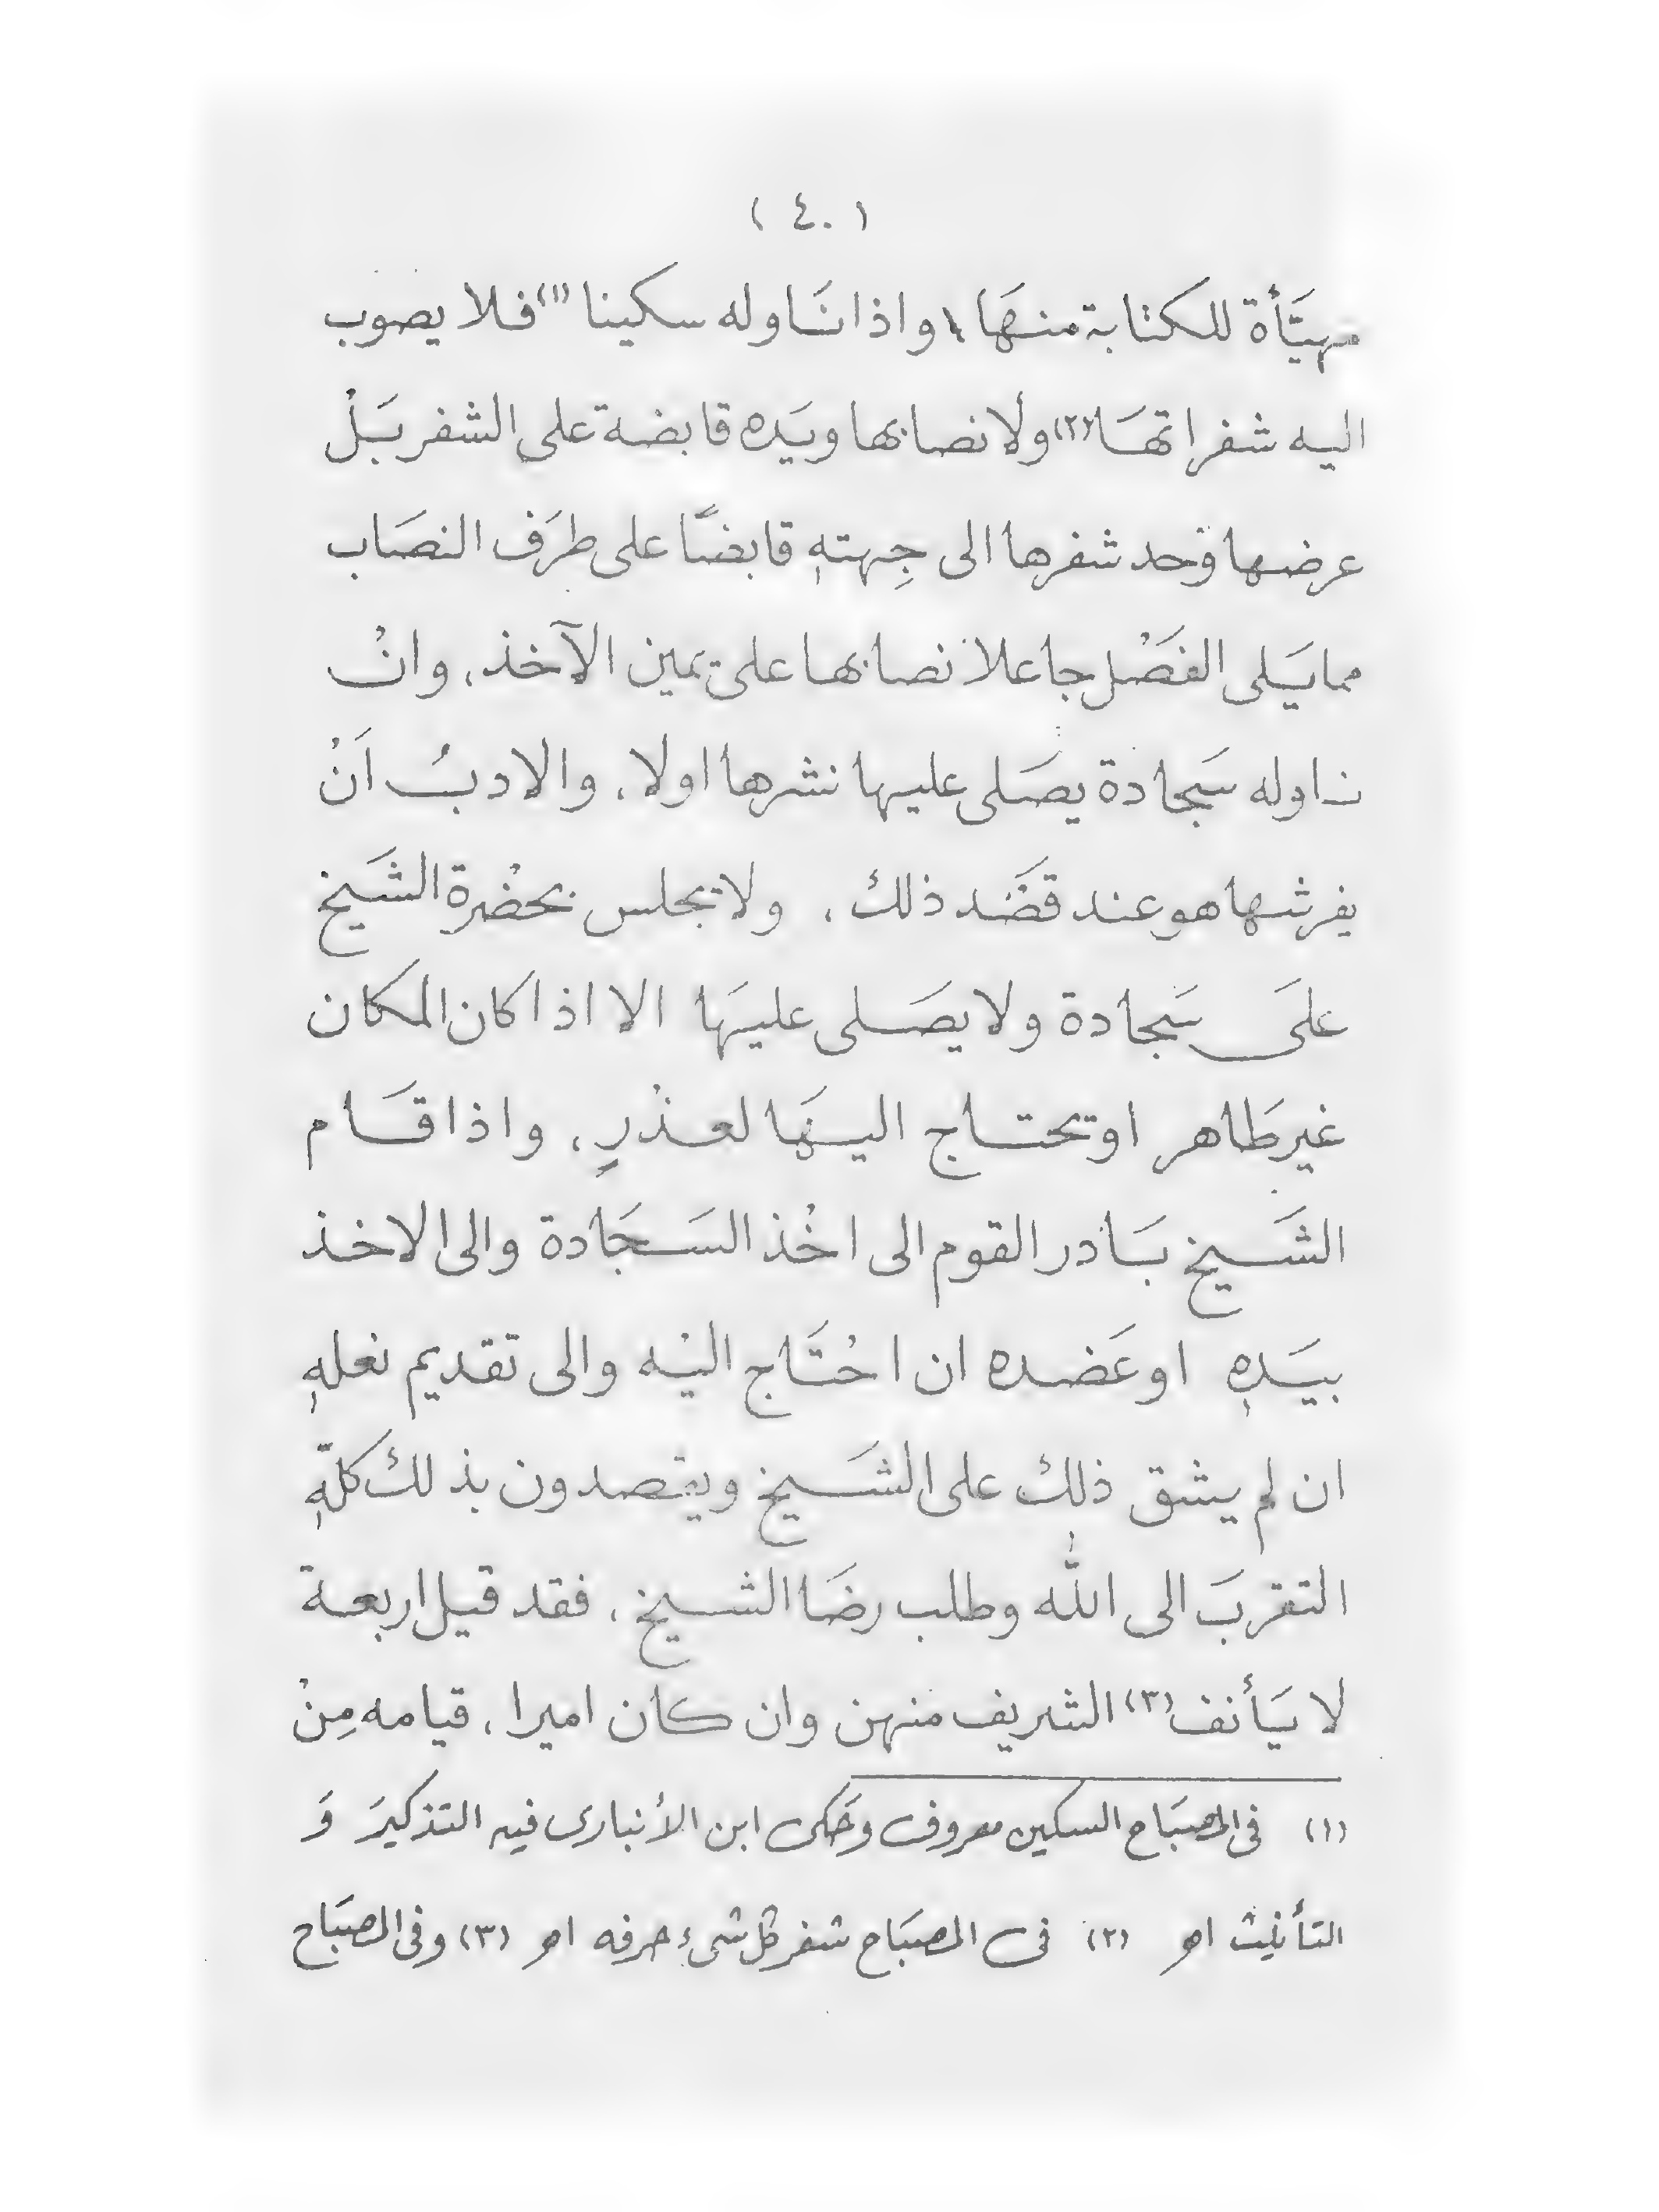 ( ٤٠ )
مهيَّأة للكتابة منهَا، واذا نَاوله سكينا (١) فلا يصوب
اليه شفراتهَا (٢) ولا نصابها ويَده قابضة على الشفر بَلْ
عرضها وحد شفرها الى جِهتهٖ قابضًا على طرَف النصَاب
مما يَلى الفَصْل جاعلا نصابها على يمين الآخذ، وانْ
ناوله سَجادة يصَلى عليها نشرها اولا، والادبُ اَنْ
يفرشها هو عند قصَد ذلك، ولا يجلس بحضْرة الشَيخ
علَى سَجادة ولا يصَلى عليهَا الا اذا كان المكان
غير طَاهر او يحتاج اليهَا لعذْرٍ، واذا قَام
الشَيخ بَادر القوم الى اخْذ السَجَادة والى الاخذ
بيَدهٖ او عَضده ان احْتَاج اليْه والى تقديم نعلهٖ
ان لم يشق ذلك على الشَيخ ويقصدون بذلك كلّهٖ
التقربَ الى الله وطلب رضَا الشيخ، فقد قيل اربعة
لا يَأنف (٣) الشريف منهن وان كان اميرا، قيامه مِنْ
(١) فى المصبَاح السكين معروف وحَكى ابن الأنبارى فيه التذكيرَ وَ
التأنيث اهـ (٢) فى المصبَاح شفر كل شىء حرفه اهـ (٣) وفى المصبَاح